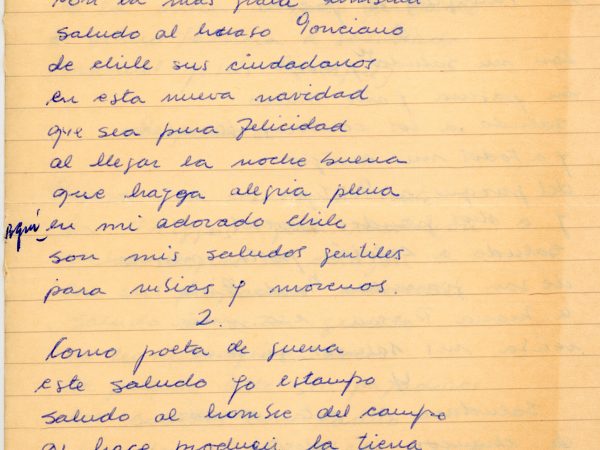 saludo al huaso Ponciano
de chile sus ciudadanos
en esta nueva navidad
que sea pura felicidad
al llegar la noche buena
que hayga alegria plena
Aquí en mi adorado chile
son mis saludos gentiles
para rusias y morenos.
2.
Como poeta de guerra
este saludo yo estampo
saludo al hombre del campo
qe hace producir la tierra